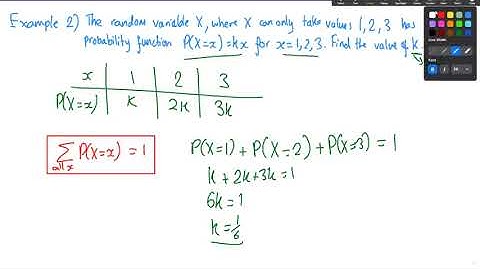 Example 2) The random variable X, where X can only take values 1,2,3 has
probability function P(X=x)=kx for x=1,2,3. Find the value of k.
x 1 2 3
P(X=x) k 2k 3k
∑ P(X=x) = 1
all x
P(X=1) + P(X=2) + P(X=3) = 1
k + 2k + 3k = 1
6k = 1
k = 1/6